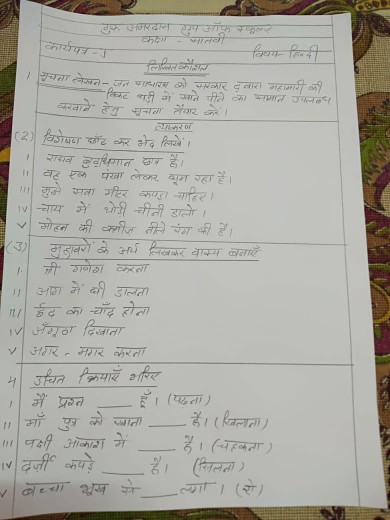 गुरु अमरदास ग्रुप ऑफ स्कूल्स
कक्षा - सातवीं
कार्यपत्र-1 विषय-हिन्दी
लिखित कौशल
1 सूचना लेखन - जन साधारण को सरकार द्वारा महामारी की
घड़ी में खाने पीने का सामान उपलब्ध
करवाने हेतु सूचना तैयार करें।
व्याकरण
(2) विशेषण छाँट कर भेद लिखें।
I राघव बुद्धिमान छात्र है।
II वह एक पंखा लेकर घूम रहा है।
III मुझे सवा मीटर कपड़ा चाहिए।
IV चाय में थोड़ी चीनी डालो।
V मोहन की कमीज नीले रंग की है।
(3) मुहावरों के अर्थ लिखकर वाक्य बनाएँ
I. श्री गणेश करना
II आग में घी डालना
III ईद का चाँद होना
IV अँगूठा दिखाना
V अगर - मगर करना
4 उचित क्रियाएँ भरिए
I मैं प्रश्न ___ हूँ। (पढ़ना)
II माँ पुत्र को खाना ___ है। (खिलाना)
III पक्षी आकाश में ___ है। (चहकना)
IV दर्जी कपड़े ___ है। (सिलना)
V बच्चा भूख से ___ लगा। (रो)